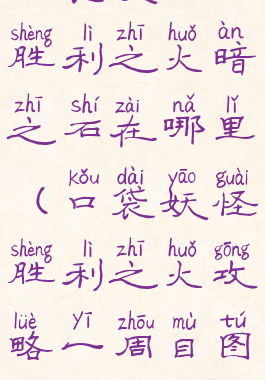 shèng lì zhī huǒ àn
胜利之火暗
zhī shí zài nǎ lǐ
之石在哪里
kǒu dài yāo guài
（口袋妖怪
shèng lì zhī huǒ gōng
胜利之火攻
lüè yī zhōu mù tú
略一周目图